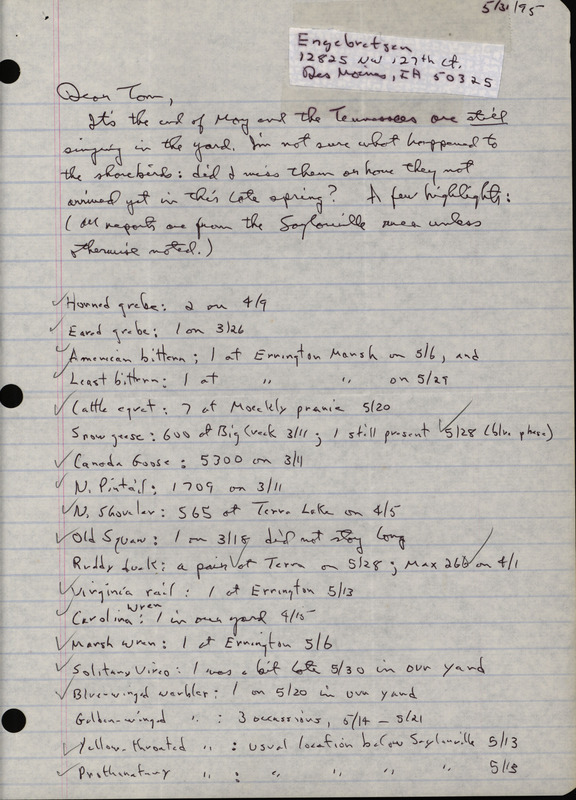 5/31/95
Engebretsen
12825 NW 127th Ct.
Des Moines, IA 50325
Dear Tom,
It's the end of May and the Tennessees are still
singing in the yard. I'm not sure what happened to
the shorebirds: did I miss them or have they not
arrived yet in this late spring? A few highlights:
(All reports are from the Saylorville area unless
otherwise noted.)
Horned grebe: 2 on 4/9
Eared grebe: 1 on 3/26
American bittern; 1 at Errington Marsh on 5/6, and
Least bittern: 1 at " " on 5/29
Cattle egret: 7 at Moeckly prairie 5/20
Snow geese: 600 at Big Creek 3/11; 1 still present 5/28 (blue phase)
Canada Goose: 5300 on 3/11
N. Pintail: 1709 on 3/11
N. Shoveler: 565 at Terra Lake on 4/5
Old Squaw: 1 on 3/18 did not stay long
Ruddy duck: a pair at Terra on 5/28; Max 266 on 4/1
Virginia rail: 1 at Errington 5/13
Carolina wren: 1 in our yard 4/15
Marsh wren: 1 at Errington 5/6
Solitary Vireo: 1 was a bit late 5/30 in our yard
Blue-winged warbler: 1 on 5/20 in our yard
Golden-winged " : 3 occassions, 5/14 – 5/21
Yellow-throated " : usual location below Saylorville 5/13
Prothonotary " : " " " " 5/13